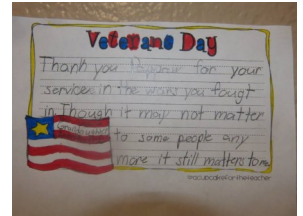 Veterans Day
Thank you for your
services in the wars you fougt
in Though it may not matter
to some people any
more it still matters to me.
©acupcakefortheteacher